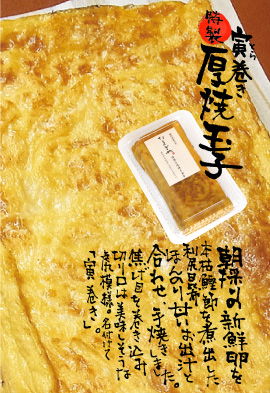 特製
寅巻き
とら
厚焼玉子
朝採りの新鮮卵を
本枯鰹節を煮出した
利尻昆布
ほんのり甘いお出汁と
合わせ、手焼きしました。
焦げ目を巻き込み
切り口は美味しそうな
虎模様。名付けて
「寅巻き」。